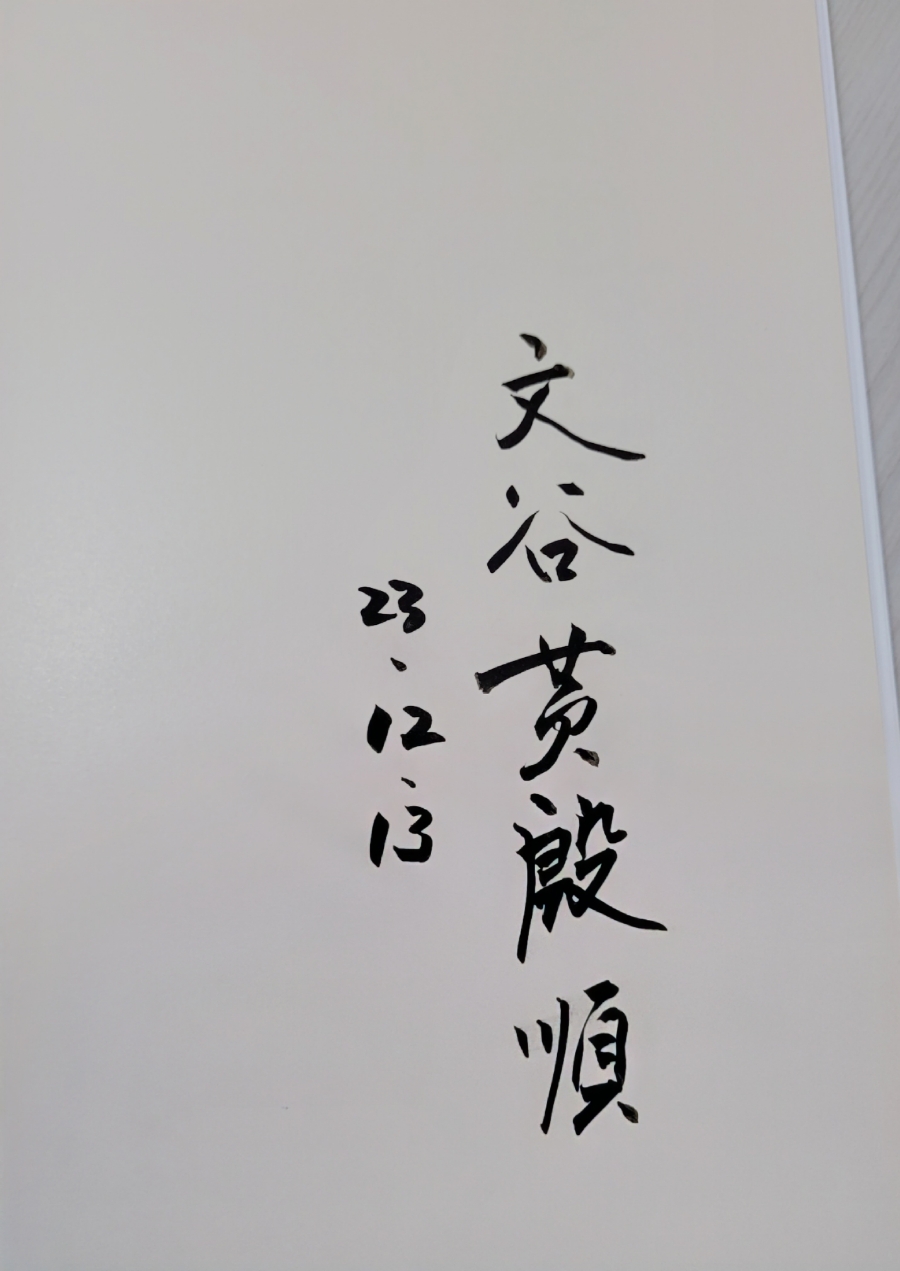 文谷 黄殷順
23.12.13